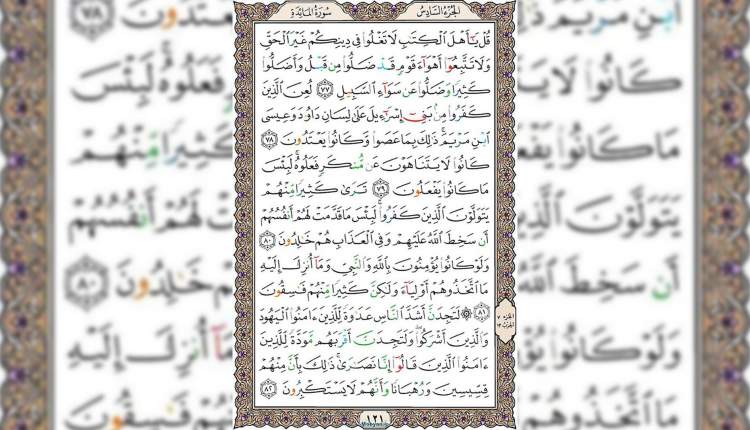 الجزء السادس
سورة المائدة
قُلْ يَٰٓأَهْلَ ٱلْكِتَٰبِ لَا تَغْلُوا۟ فِى دِينِكُمْ غَيْرَ ٱلْحَقِّ
وَلَا تَتَّبِعُوٓا۟ أَهْوَآءَ قَوْمٍ قَدْ ضَلُّوا۟ مِن قَبْلُ وَأَضَلُّوا۟
كَثِيرًا وَضَلُّوا۟ عَن سَوَآءِ ٱلسَّبِيلِ ٧٧ لُعِنَ ٱلَّذِينَ
كَفَرُوا۟ مِنۢ بَنِىٓ إِسْرَٰٓءِيلَ عَلَىٰ لِسَانِ دَاوُۥدَ وَعِيسَى
ٱبْنِ مَرْيَمَ ذَٰلِكَ بِمَا عَصَوا۟ وَّكَانُوا۟ يَعْتَدُونَ ٧٨
كَانُوا۟ لَا يَتَنَاهَوْنَ عَن مُّنكَرٍ فَعَلُوهُ لَبِئْسَ
مَا كَانُوا۟ يَفْعَلُونَ ٧٩ تَرَىٰ كَثِيرًا مِّنْهُمْ
يَتَوَلَّوْنَ ٱلَّذِينَ كَفَرُوا۟ لَبِئْسَ مَا قَدَّمَتْ لَهُمْ أَنفُسُهُمْ
أَن سَخِطَ ٱللَّهُ عَلَيْهِمْ وَفِى ٱلْعَذَابِ هُمْ خَٰلِدُونَ ٨٠
وَلَوْ كَانُوا۟ يُؤْمِنُونَ بِٱللَّهِ وَٱلنَّبِىِّ وَمَآ أُنزِلَ إِلَيْهِ
مَا ٱتَّخَذُوهُمْ أَوْلِيَآءَ وَلَٰكِنَّ كَثِيرًا مِّنْهُمْ فَٰسِقُونَ
٨١ ۞ لَتَجِدَنَّ أَشَدَّ ٱلنَّاسِ عَدَٰوَةً لِّلَّذِينَ ءَامَنُوا۟ ٱلْيَهُودَ
وَٱلَّذِينَ أَشْرَكُوا۟ وَلَتَجِدَنَّ أَقْرَبَهُم مَّوَدَّةً لِّلَّذِينَ
ءَامَنُوا۟ ٱلَّذِينَ قَالُوٓا۟ إِنَّا نَصَٰرَىٰ ذَٰلِكَ بِأَنَّ مِنْهُمْ
قِسِّيسِينَ وَرُهْبَانًا وَأَنَّهُمْ لَا يَسْتَكْبِرُونَ ٨٢
١٢١